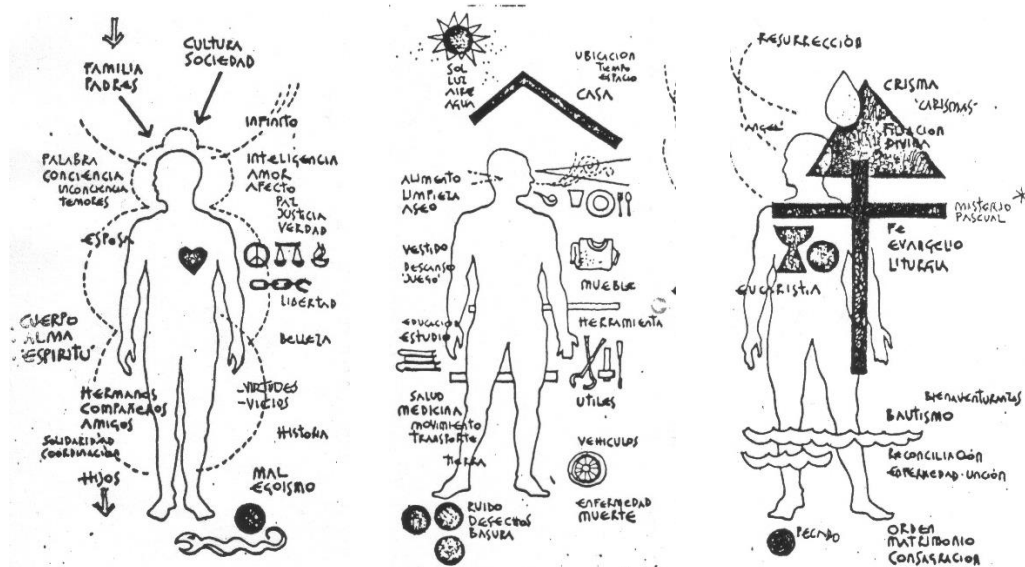 FAMILIA
PADRES
CULTURA
SOCIEDAD
INFINITO
PALABRA
CONCIENCIA
INCONCIENCIA
TEMORES
INTELIGENCIA
AMOR
AFECTO
PAZ
JUSTICIA
VERDAD
ESPOSA
LIBERTAD
CUERPO
ALMA
"ESPIRITU"
BELLEZA
HERMANOS
COMPAÑEROS
AMIGOS
-VIRTUDES
-VICIOS
SOLIDARIDAD
COORDINACIÓN
HISTORIA
HIJOS
MAL
EGOISMO
SOL
LUZ
AIRE
AGUA
UBICACION
TIEMPO
ESPACIO
CASA
ALIMENTO
LIMPIEZA
ASEO
VESTIDO
DESCANSO
"JUEGO"
MUEBLE
EDUCACION
ESTUDIO
HERRAMIENTA
UTILES
SALUD
MEDICINA
MOVIMIENTO
TRANSPORTE
TIERRA
VEHICULOS
ENFERMEDAD
MUERTE
RUIDO
DESECHOS
BASURA
RESURRECCIÓN
CRISMA
"CARISMAS"
ANGEL
FILIACION
DIVINA
MISTERIO
PASCUAL
FE
EVANGELIO
LITURGIA
EUCARISTIA
BIENAVENTURANZAS
BAUTISMO
RECONCILIACIÓN
ENFERMEDAD-UNCIÓN
PECADO
ORDEN
MATRIMONIO
CONSAGRACION